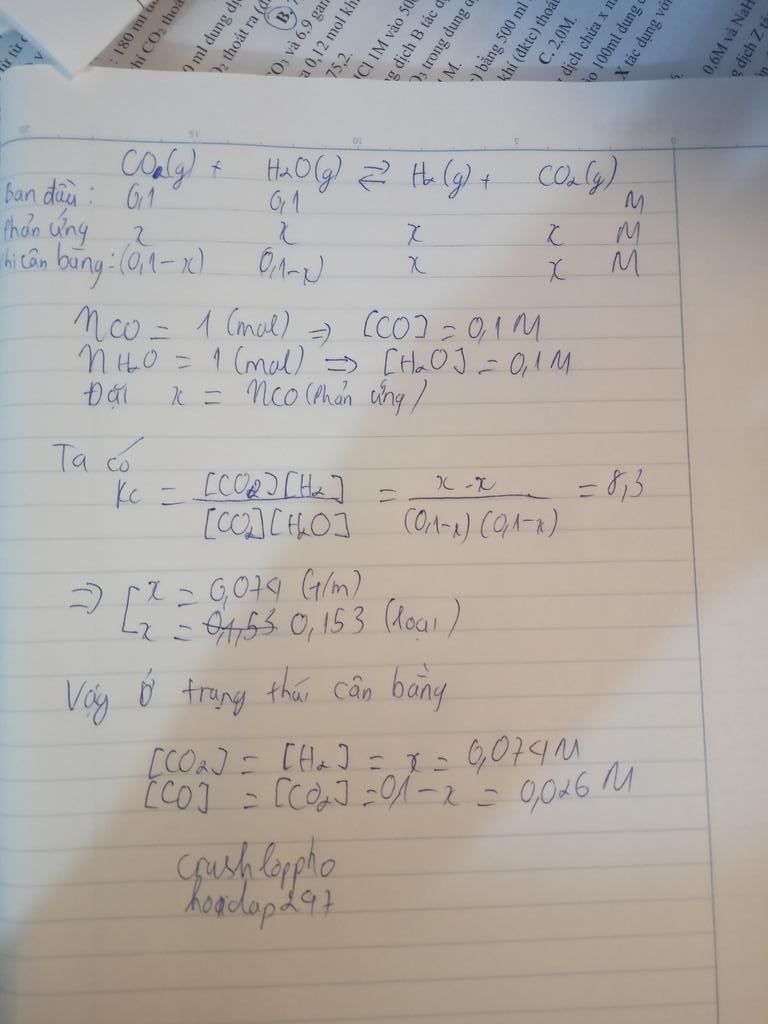 : 180 ml
hí CO₂ thoá
0 ml dung dị
O₂ thoát ra (đ
B.
CO₃ và 6,9 gam
a 0,12 mol kh
75,2.
HCl 1M vào 500
g dịch B tác dụ
O₃ trong dung d
1 M.
) bằng 500 ml
khí (đktc) thoát
C. 2.0M.
dịch chứa x m
o 100ml dung d
X tác dụng với
0.6M và NaH
g dịch Z tá
20 15 10 5 0
CO₂(g) + H₂O(g) ⇌ H₂(g) + CO₂(g)
Ban đầu: 0,1 0,1 M
Phản ứng x x x x M
hi cân bằng: (0,1-x) 0,1-x) x x M
nCO = 1 (mol) => [CO] = 0,1 M
nH₂O = 1 (mol) => [H₂O] = 0,1 M
Đặt x = nCO (phản ứng)
Ta có
Kc = [CO₂][H₂] / [CO₂][H₂O] = x.x / (0,1-x)(0,1-x) = 8,3
=> [ x = 0,074 (t/m)
x = 0,153 0,153 (loại)
Vậy ở trạng thái cân bằng
[CO₂] = [H₂] = x = 0,074 M
[CO] = [CO₂] = 0,1 - x = 0,026 M
Crushloppho
hoidap247